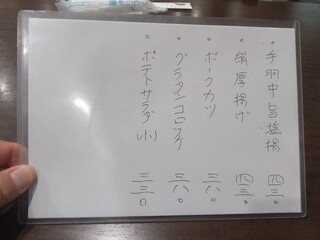 ◦手羽中旨塩揚 四三〇
◦絹厚揚げ 四三〇
◦ポークカツ 三八〇
◦グラタンコロッケ 三八〇
◦ポテトサラダ(小) 三三〇